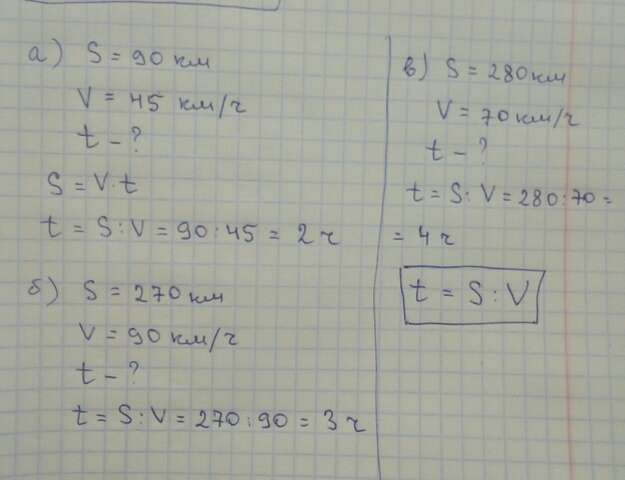 а) S = 90 км
V = 45 км/ч
t – ?
S = V · t
t = S : V = 90 : 45 = 2 ч
б) S = 270 км
V = 90 км/ч
t – ?
t = S : V = 270 : 90 = 3 ч
в) S = 280 км
V = 70 км/ч
t – ?
t = S : V = 280 : 70 =
= 4 ч
t = S : V